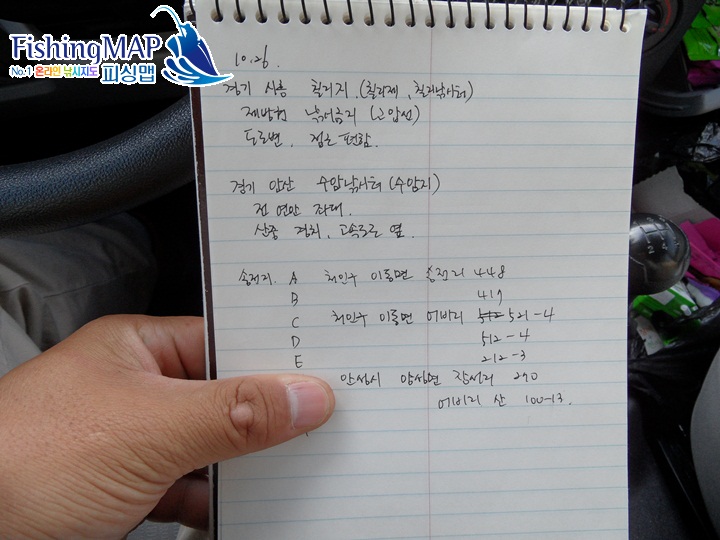 FishingMAP
No.1 온라인 낚시지도 피싱맵
10.26.
경기 시흥 칠리지.(칠리제, 칠리낚시터)
제방권 낚시금지 (고압선)
도로변, 접근 편함.
경기 안산 수암낚시터 (수암지)
전 연안 좌대.
산중 경치, 고속도로 옆.
송전지. A 처인구 이동면 송전리 448
B 417
C 처인구 이동면 어비리 521-4
D 512-4
E 212-3
안성시 양성면 장서리 290
어비리 산 100-13.